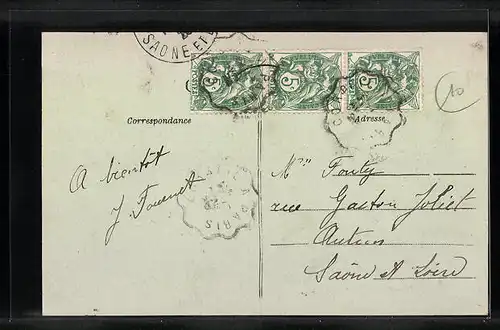 SAÔNE-ET-
5c 5c 5c
Correspondance
Adresse
A bientôt
J. Fournet
A PARIS
Mme Fouty
rue Gaston Joliet
Autun
Saône et Loire
10